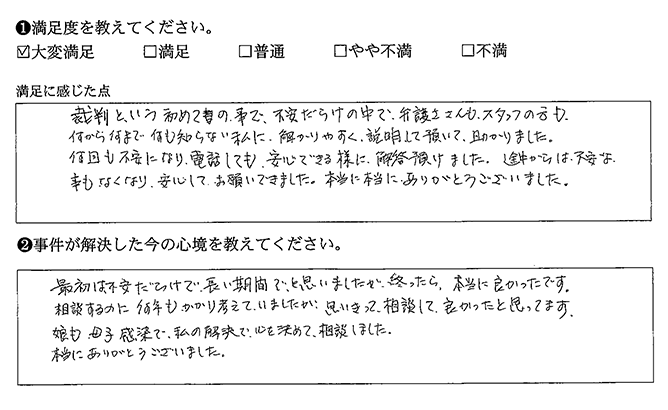 ❶満足度を教えてください。
☑大変満足 □満足 □普通 □やや不満 □不満
満足に感じた点
裁判という初めて尽の事で、不安だらけの中で、弁護士さんも、スタッフの方も、
何から何まで何も知らない私に、解かりやすく、説明して頂いて、助かりました。
何回も不安になり、電話しても、安心できる様に、解答頂けました。途中からは、不安な
事もなくなり、安心して、お願いできました。本当に本当に、ありがとうございました。
❷事件が解決した今の心境を教えてください。
最初は不安だらけで、長い期間で、と思いましたが、終ったら、本当に良かったです。
相談するのに何年もかかり考えて、いましたが、思いきって、相談して、良かったと思ってます。
娘も母子感染で、私の解決で、心を決めて、相談しました。
本当にありがとうございました。